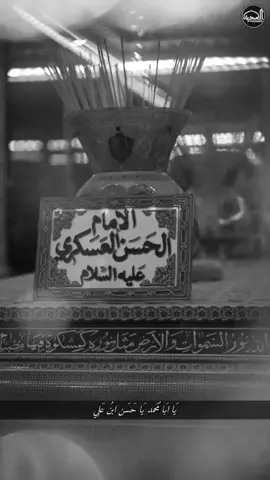 الإمام
الحَسَن العَسكري
عليه السَّلام
نور السموات والأرض مثل نوره كمشكوة فيها
يَا أبَا مُحَمَّد يَا حَسَن ابْنُ عَلِي